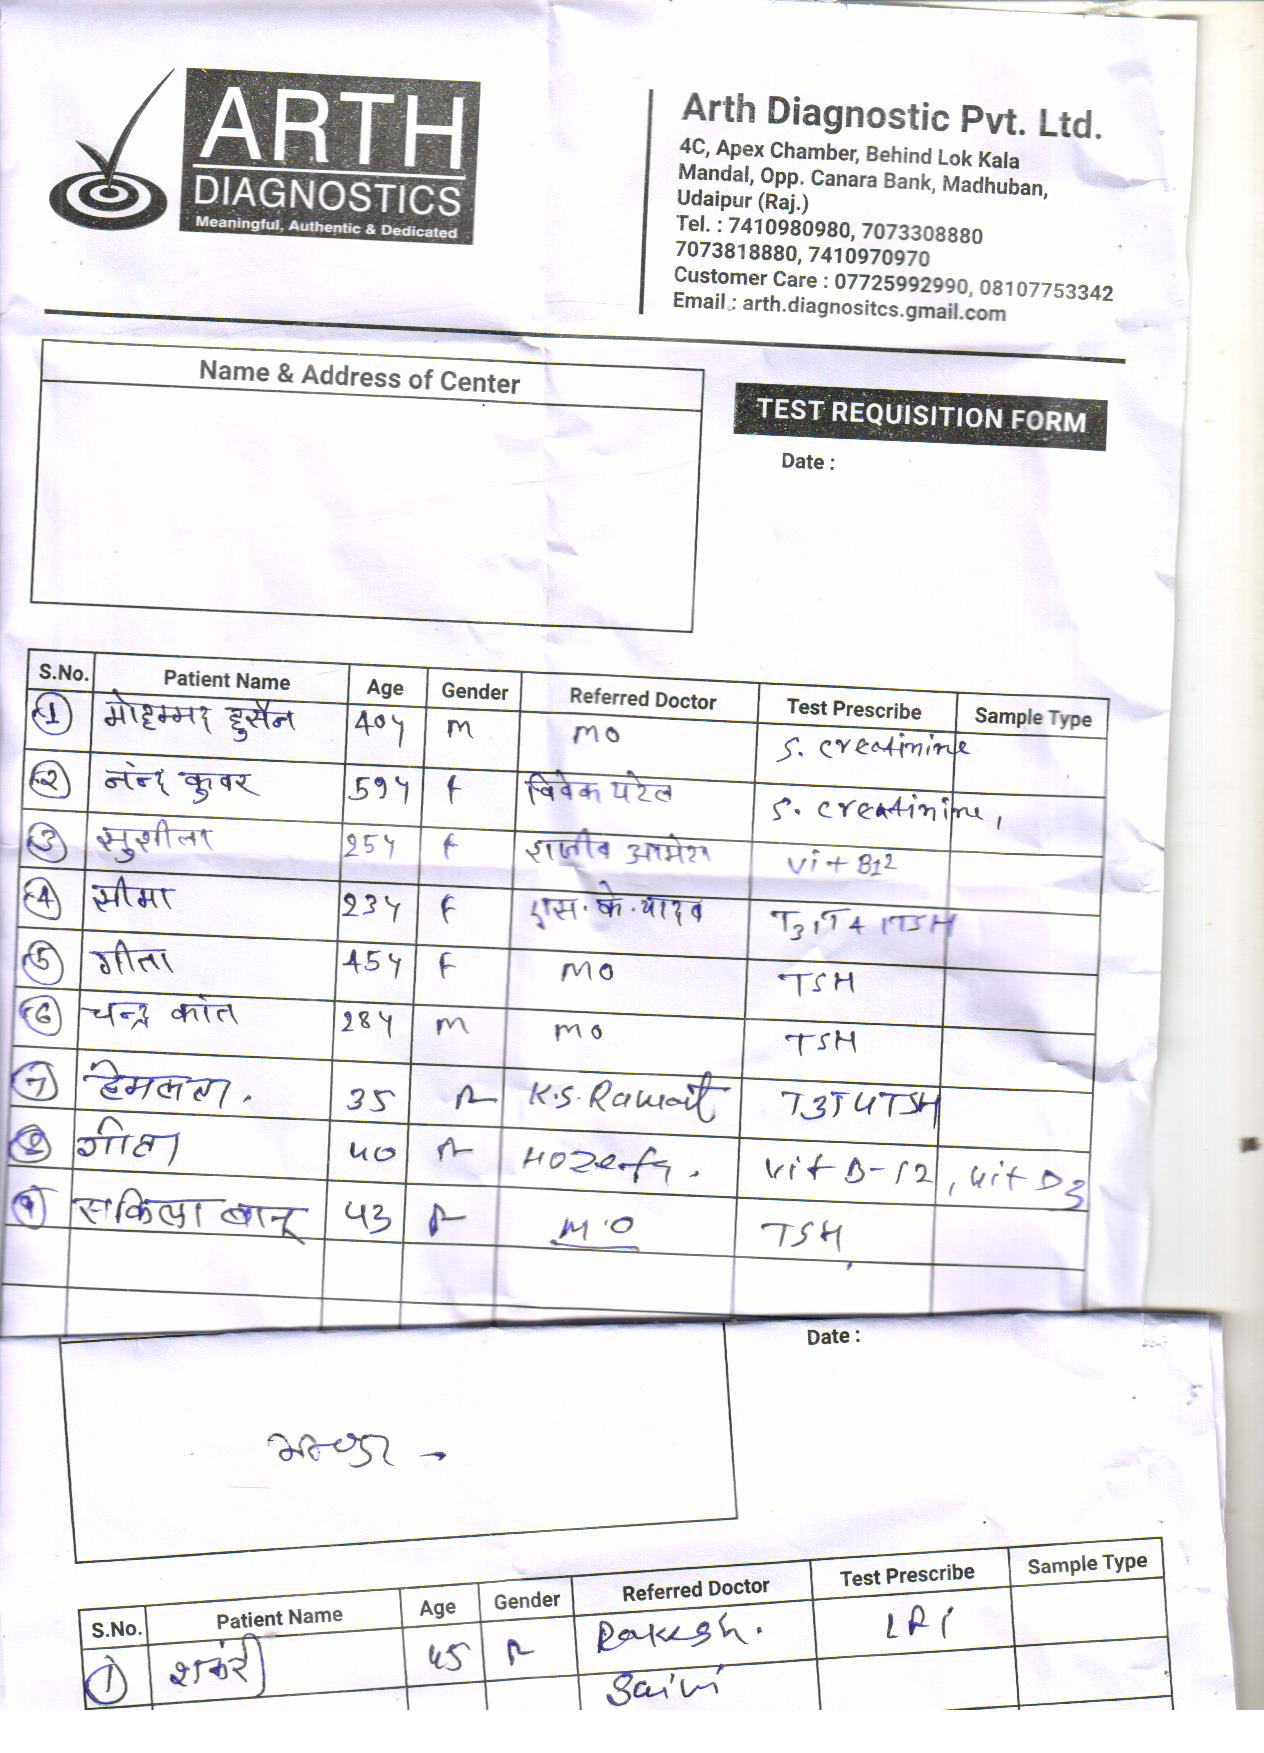 ARTH
DIAGNOSTICS
Meaningful, Authentic & Dedicated
Arth Diagnostic Pvt. Ltd.
4C, Apex Chamber, Behind Lok Kala
Mandal, Opp. Canara Bank, Madhuban,
Udaipur (Raj.)
Tel. : 7410980980, 7073308880
7073818880, 7410970970
Customer Care : 07725992990, 08107753342
Email : arth.diagnositcs.gmail.com
Name & Address of Center
TEST REQUISITION FORM
Date :
S.No. Patient Name Age Gender Referred Doctor Test Prescribe Sample Type
1 मोहम्मद हुसैन 40y M MO S. creatinine
2 नन्द कुवर 59y F विवेक पटेल S. creatinine,
3 सुशीला 25y F vit B12
4 सीमा 23y F एस. के. यादव T3, T4, TSH
5 गीता 45y F MO TSH
6 चन्द्र कांत 28y M MO TSH
7 हेमलता. 35 F K.S. Rawat T3T4TSH
8 गीता 40 F Hozefa. Vit B-12, Vit D3
9 सकिला बानू 43 F M.O TSH
Date :
S.No. Patient Name Age Gender Referred Doctor Test Prescribe Sample Type
1 45 F Rakesh.
Saini